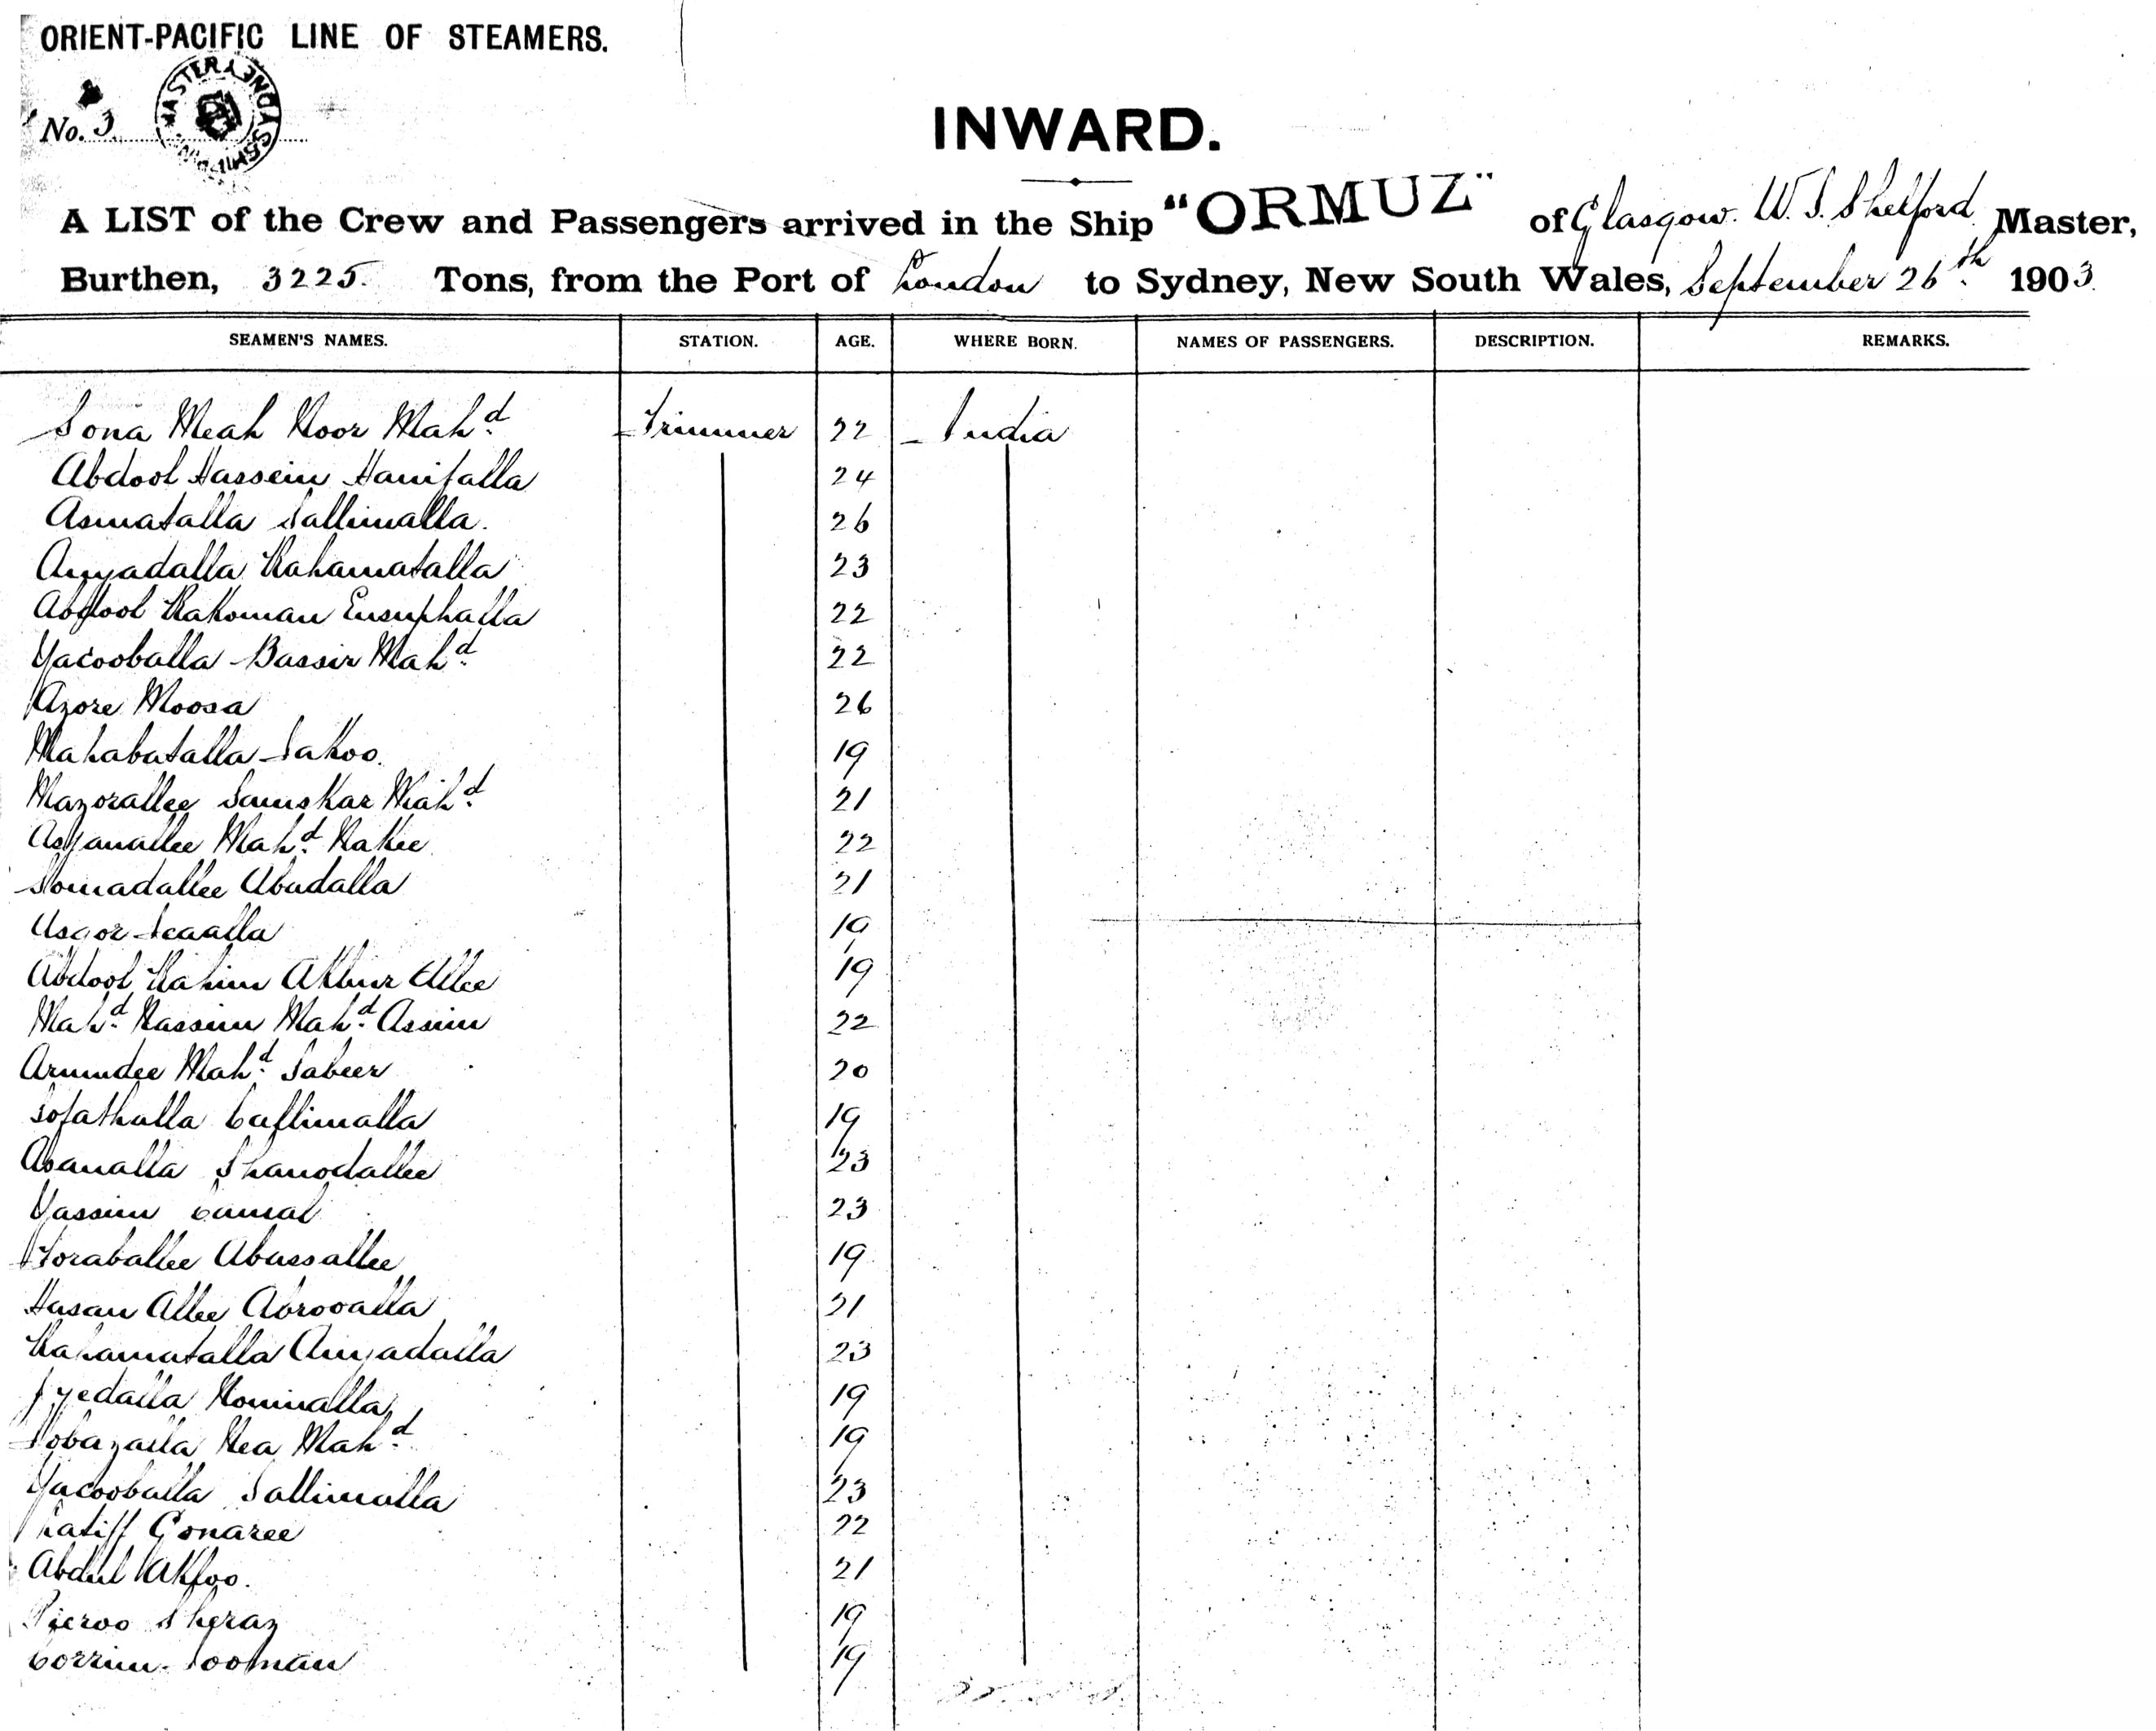 ORIENT-PACIFIC LINE OF STEAMERS.
No. 3
INWARD.
A LIST of the Crew and Passengers arrived in the Ship "ORMUZ" of Glasgow. W. S. Shelford Master,
Burthen, 3225. Tons, from the Port of London to Sydney, New South Wales, September 26th 1903.
SEAMEN'S NAMES. STATION. AGE. WHERE BORN. NAMES OF PASSENGERS. DESCRIPTION. REMARKS.
Sona Meah Noor Mahd. Trimmer 22 India
Abdool Hassein Hanifalla 24
Asmatalla Sallimalla. 26
Amyadalla Rahamatalla 23
Abdool Rahoman 22
Yacooballa Bassir Mahd. 22
Azore Moosa 26
Mahabatalla Sakoo. 19
Mazorallee Mahd. 21
Mahd. 22
Abudalla 21
19
Abdool Rahim Allee 19
Mahd. Kassim Mahd. Assim 22
Mahd. Sabeer 20
19
Asanalla 23
Yassim 23
Toraballee Abassallee 19
Hasan Allee 21
Rahamatalla Amyadalla 23
Mominalla 19
Mahd. 19
Yacooballa Sallimalla 23
Latiff Gonaree 22
Abdul 21
Pieroo Sheraz 19
19